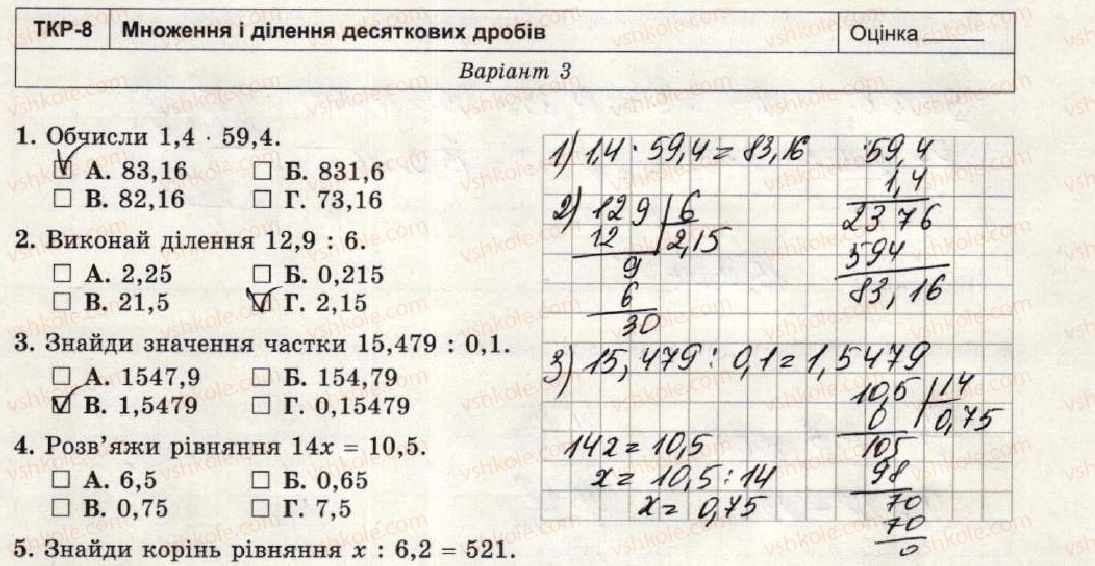 ТКР-8 Множення і ділення десяткових дробів Оцінка
Варіант 3
1. Обчисли 1,4 · 59,4.
А. 83,16 Б. 831,6
В. 82,16 Г. 73,16
2. Виконай ділення 12,9 : 6.
А. 2,25 Б. 0,215
В. 21,5 Г. 2,15
3. Знайди значення частки 15,479 : 0,1.
А. 1547,9 Б. 154,79
В. 1,5479 Г. 0,15479
4. Розв’яжи рівняння 14x = 10,5.
А. 6,5 Б. 0,65
В. 0,75 Г. 7,5
5. Знайди корінь рівняння x : 6,2 = 521.
1) 1,4 · 59,4 = 83,16
59,4
1,4
2376
594
83,16
2) 12 9 6
12 2,15
9
6
30
3) 15,479 : 0,1 = 1,5479
10,5 14
0 0,75
105
98
70
70
0
14x = 10,5
x = 10,5 : 14
x = 0,75
vshkole.com